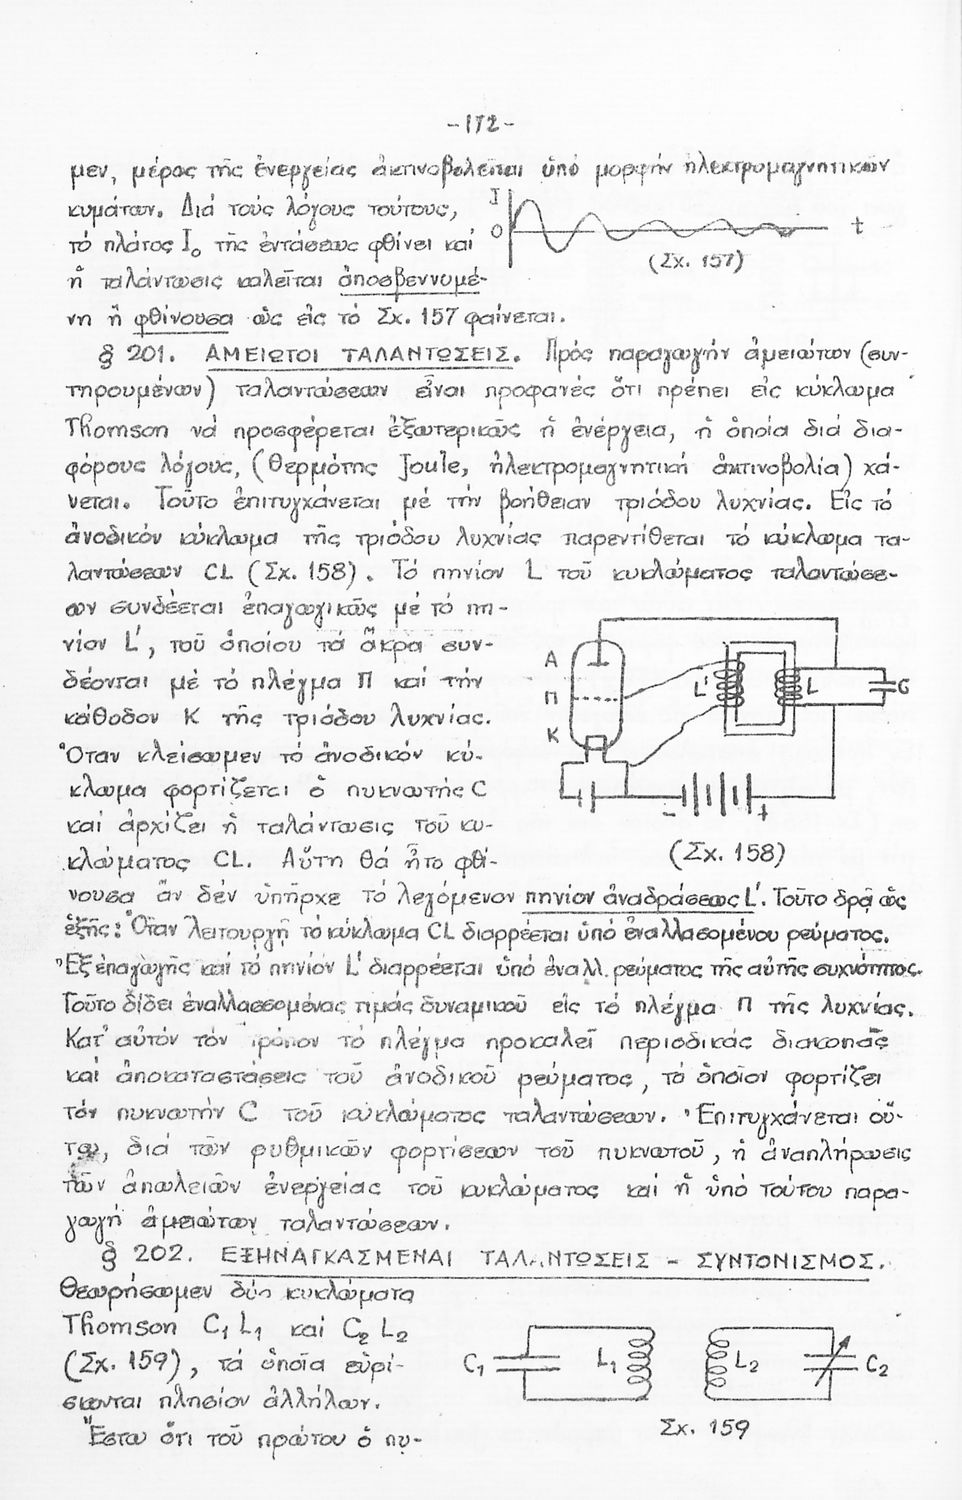 -172-
μεν, μέρος τῆς ἐνεργείας ἀκτινοβολεῖται ὑπό μορφήν ἠλεκτρομαγνητικῶν
κυμάτων. Διά τούς λόγους τούτους,
τό πλάτος I₀ τῆς ἐντάσεως φθίνει καί
ἡ ταλάντωσις καλεῖται ἀποσβεννυμέ-
νη ἤ φθίνουσα ὡς εἰς τό Σχ. 157 φαίνεται.
I
O
t
(Σχ. 157)
§ 201. ΑΜΕΙΩΤΟΙ ΤΑΛΑΝΤΩΣΕΙΣ. Πρός παραγωγήν ἀμειώτων (συν-
τηρουμένων) ταλαντώσεων εἶναι προφανές ὅτι πρέπει εἰς κύκλωμα
Thomson νά προσφέρεται ἐξωτερικῶς ἡ ἐνέργεια, ἡ ὁποία διά δια-
φόρους λόγους, (θερμότης Joule, ἠλεκτρομαγνητική ἀκτινοβολία) χά-
νεται. Τοῦτο ἐπιτυγχάνεται μέ τήν βοήθειαν τριόδου λυχνίας. Εἰς τό
ἀνοδικόν κύκλωμα τῆς τριόδου λυχνίας παρεντίθεται τό κύκλωμα τα-
λαντώσεων CL (Σχ. 158). Τό πηνίον L τοῦ κυκλώματος ταλαντώσε-
ων συνδέεται ἐπαγωγικῶς μέ τό πη-
νίον L', τοῦ ὁποίου τά ἄκρα συν-
δέονται μέ τό πλέγμα Π καί τήν
κάθοδον Κ τῆς τριόδου λυχνίας.
Ὅταν κλείσωμεν τό ἀνοδικόν κύ-
κλωμα φορτίζεται ὁ πυκνωτής C
καί ἀρχίζει ἡ ταλάντωσις τοῦ κυ-
κλώματος CL. Αὕτη θά ἦτο φθί-
Α
Π
Κ
L'
L
C
-
+
(Σχ. 158)
νουσα ἄν δέν ὑπῆρχε τό λεγόμενον πηνίον ἀναδράσεως L'. Τοῦτο δρᾷ ὡς
ἑξῆς: Ὅταν λειτουργῇ τό κύκλωμα CL διαρρέεται ὑπό ἐναλλασομένου ρεύματος.
Ἐξ ἐπαγωγῆς καί τό πηνίον L' διαρρέεται ὑπό ἐναλλ. ρεύματος τῆς αὐτῆς συχνότητος.
Τοῦτο δίδει ἐναλλασσομένας τιμάς δυναμικοῦ εἰς τό πλέγμα Π τῆς λυχνίας.
Κατ' αὐτόν τόν τρόπον τό πλέγμα προκαλεῖ περιοδικάς διακοπάς
καί ἀποκαταστάσεις τοῦ ἀνοδικοῦ ρεύματος, τό ὁποῖον φορτίζει
τόν πυκνωτήν C τοῦ κυκλώματος ταλαντώσεων. Ἐπιτυγχάνεται οὕ-
τω, διά τῶν ρυθμικῶν φορτίσεων τοῦ πυκνωτοῦ, ἡ ἀναπλήρωσις
τῶν ἀπωλειῶν ἐνεργείας τοῦ κυκλώματος καί ἡ ὑπό τούτου παρα-
γωγή ἀμειώτων ταλαντώσεων.
§ 202. ΕΞΗΝΑΓΚΑΣΜΕΝΑΙ ΤΑΛΑΝΤΩΣΕΙΣ - ΣΥΝΤΟΝΙΣΜΟΣ.
Θεωρήσωμεν δύο κυκλώματα
Thomson C₁ L₁ καί C₂ L₂
(Σχ. 159), τά ὁποῖα εὑρί-
σκονται πλησίον ἀλλήλων.
Ἔστω ὅτι τοῦ πρώτου ὁ πυ-
C₁
L₁
L₂
C₂
Σχ. 159